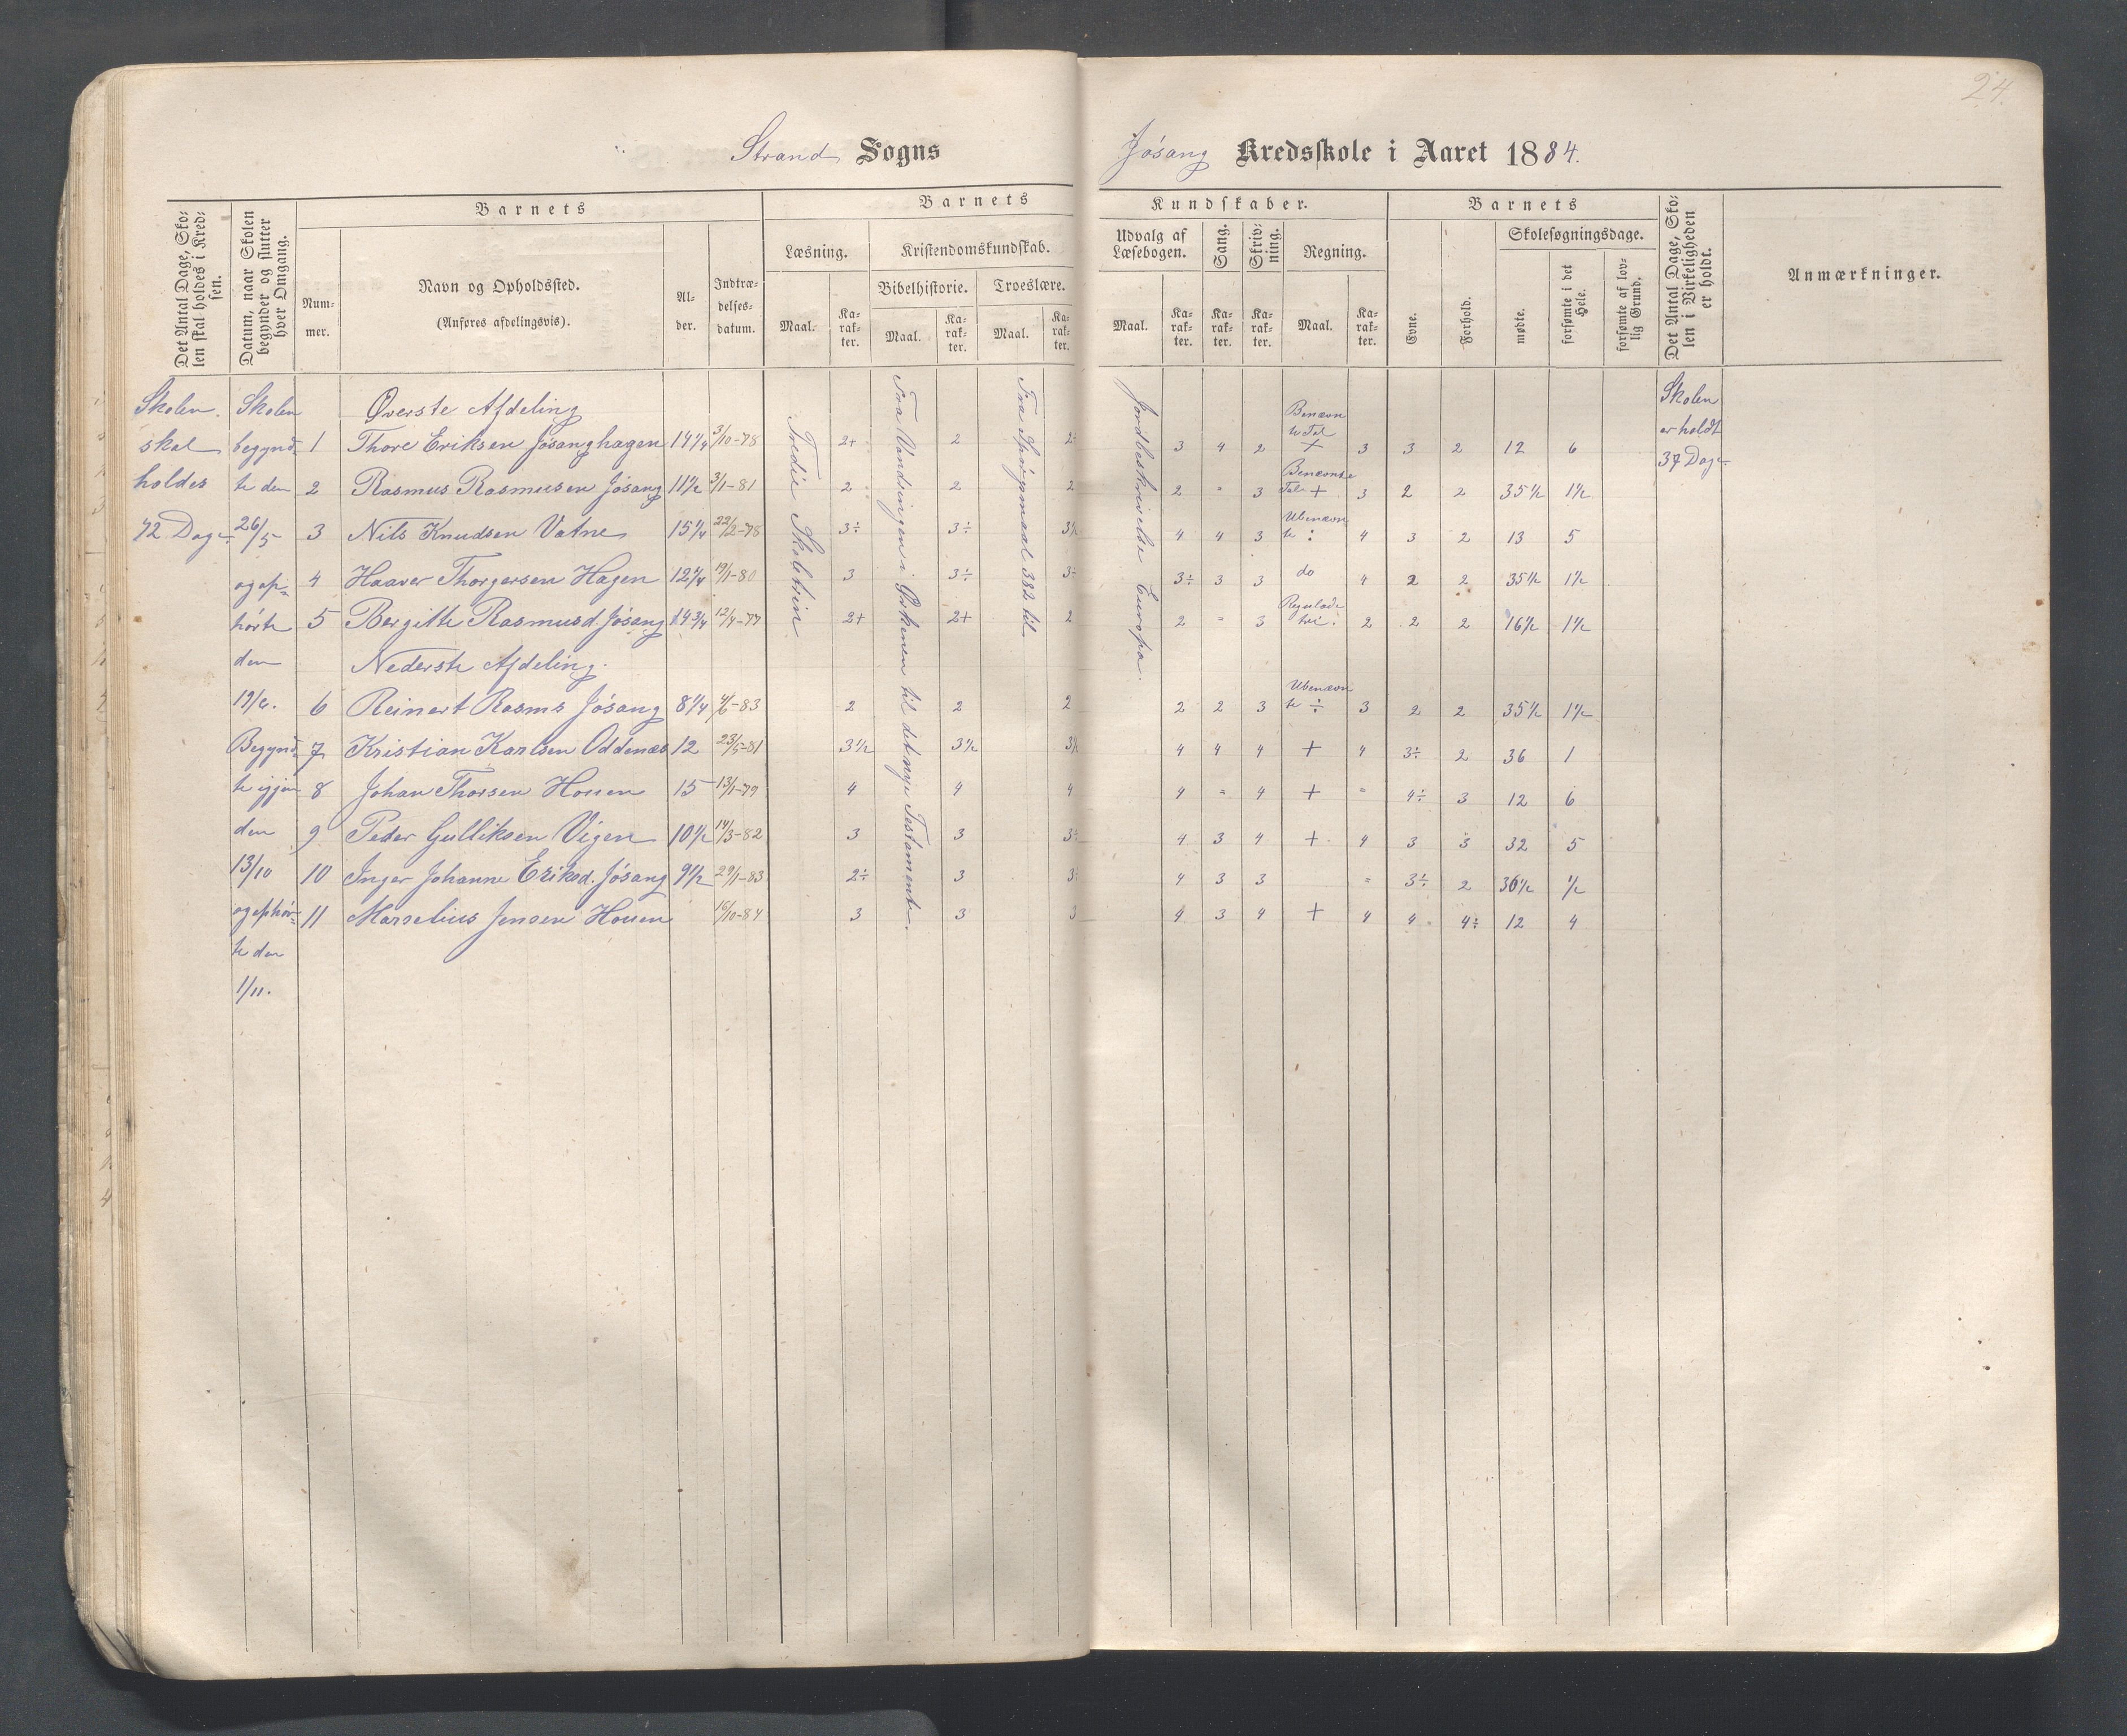 24.
Strand Sogns
Jósang Kredsskole i Aaret 1884.
Det Antal Dage, Skolen skal holdes i Kredsen.
Datum, naar Skolen begynder og slutter hver Omgang.
Barnets
Nummer.
Navn og Opholdssted.
(Anføres afdelingsvis).
Alder.
Indtrædelsesdatum.
Barnets
Læsning.
Kristendomskundskab.
Bibelhistorie. Troeslære.
Maal. Karakter. Maal. Karakter. Maal. Karakter.
Kundskaber.
Udvalg af Læsebogen. Sang. Skrivning. Regning.
Maal. Karakter. Karakter. Karakter. Maal. Karakter.
Barnets
Evne. Forhold.
Skolesøgningsdage.
mødte. forsømte i det Hele. forsømte af lovlig Grund.
Det Antal Dage, Skolen i Virkeligheden er holdt.
Anmærkninger.
Skolen skal holdes 72 Dage
Skolen begyndte den 26/5 og ophørte den 19/6. Begyndte igjen den 13/10 og ophørte den 1/11.
Tredie Skoletrin
Fra Vandringen i Ørkenen til det nye Testamente.
Fra Spørgsmaal 332 til
Jordbeskrivelse Europa.
Skolen er holdt 37 Dage
Øverste Afdeling
1 Thore Eriksen Jósanghagen 14 1/4 3/10-78 2+ 2 2÷ 3 4 2 Benævnte Tal + 3 3 2 12 6
2 Rasmus Rasmusen Jósang 11 1/2 3/1-81 2 2 2 2 " 3 Benævnte Tal + 3 2 2 35 1/2 1 1/2
3 Nils Knudsen Vatne 15 1/4 22/2-78 3÷ 3÷ 3 1/2 4 4 3 Ubenævnte : 4 3 2 13 5
4 Haaver Thorgersen Hagen 12 1/4 19/1-80 3 3÷ 3÷ 3÷ 3 3 do 4 2 2 35 1/2 1 1/2
5 Bergitte Rasmusd. Jósang 14 3/4 12/4-77 2+ 2+ 2 2 " 3 Reguladetri : 2 2 2 16 1/2 1 1/2
Nederste Afdeling.
6 Reinert Rasms Jósang 8 1/4 4/6-83 2 2 2 2 2 3 Ubenævnte ÷ 3 2 2 35 1/2 1 1/2
7 Kristian Karlsen Oddenæs 12 23/5-81 3 1/2 3 1/2 3 1/2 4 4 4 + 4 3÷ 2 36 1
8 Johan Thorsen Houen 15 13/1-79 4 4 4 4 " 4 + " 4÷ 3 12 6
9 Peder Gulliksen Vigen 10 1/2 14/3-82 3 3 3÷ 4 3 4 + 4 3 3 32 5
10 Inger Johanne Eriksd. Jósang 9 1/2 29/1-83 2÷ 3 3÷ 4 3 3 " 3÷ 2 36 1/2 1/2
11 Marselius Jensen Houen 16/10-84 3 3 3 4 3 4 + 4 4 4÷ 12 4